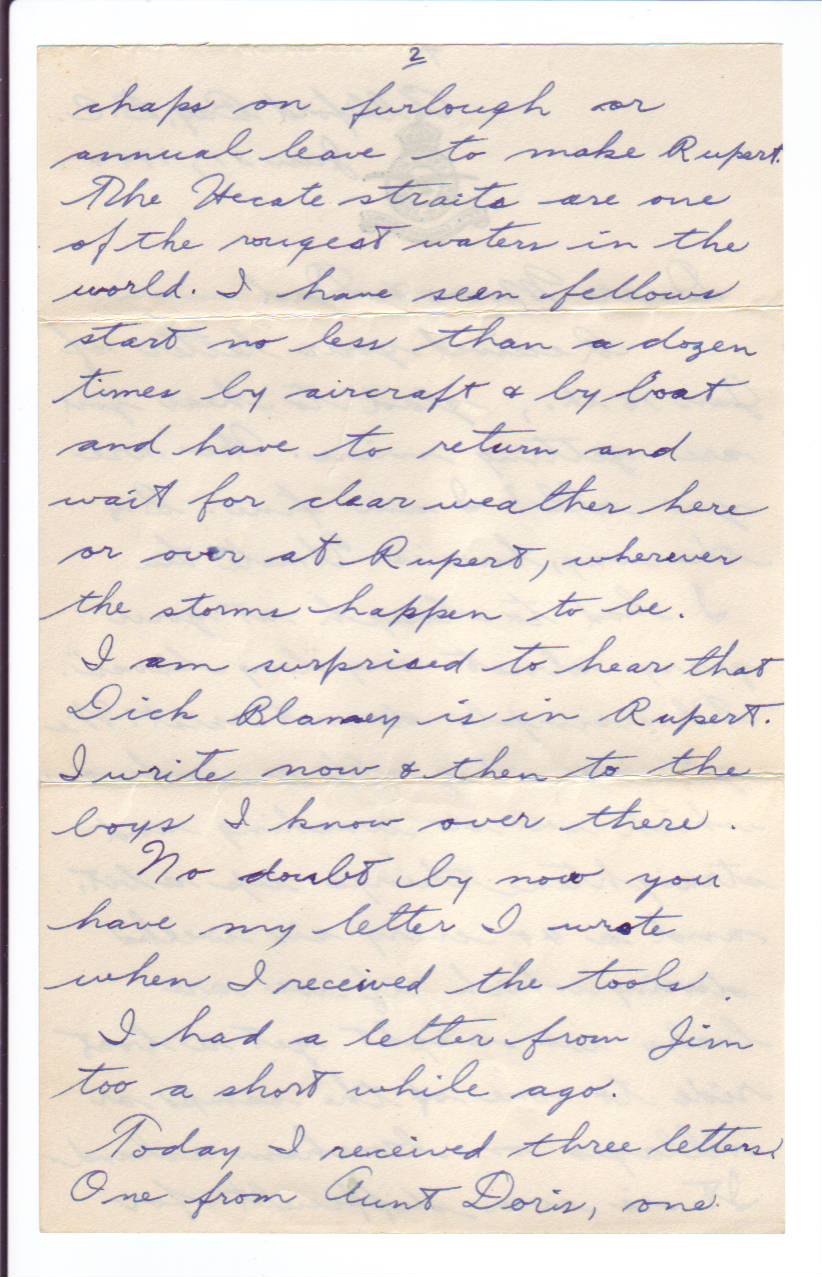 2
chaps on furlough or
annual leave to make Rupert.
The Hecate straits are one
of the rougest waters in the
world. I have seen fellows
start no less than a dozen
times by aircraft & by boat
and have to return and
wait for clear weather here
or over at Rupert, wherever
the storms happen to be.
I am surprised to hear that
Dick Blamey is in Rupert.
I write now & then to the
boys I know over there.
No doubt by now you
have my letter I wrote
when I received the tools.
I had a letter from Jim
too a short while ago.
Today I received three letters.
One from Aunt Doris, one